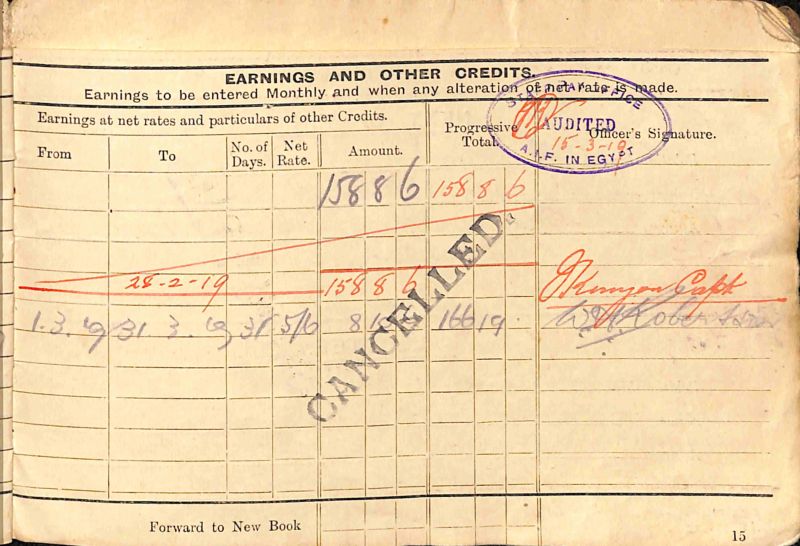 EARNINGS AND OTHER CREDITS.
Earnings to be entered Monthly and when any alteration of net rate is made.
STAFF PAY OFFICE
AUDITED
15-3-19
A.I.F. IN EGYPT
Earnings at net rates and particulars of other Credits.
Progressive Total.
Officer's Signature.
From To No. of Days. Net Rate. Amount.
158 8 6 158 8 6
28-2-19 158 8 6 Capt
1.3.19 31 3.19 31 5/6 8 166 19 Robertson
CANCELLED.
Forward to New Book
15